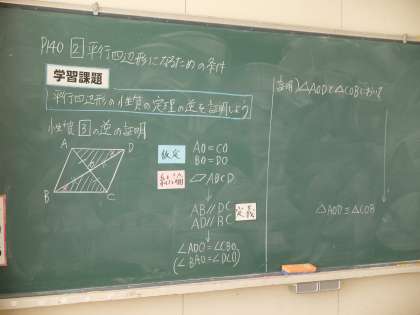 P140 ② 平行四辺形になるための条件
学習課題
平行四辺形の性質の定理の逆を証明しよう
性質③の逆の証明
A D
O
B C
仮定 AO=CO
BO=DO
結論 ▱ABCD
↓
AB//DC
AD//BC 定義
↓
∠ADO=∠CBO
(∠BAO=∠DCO)
証明)△AODと△COBにおいて
△AOD≡△COB